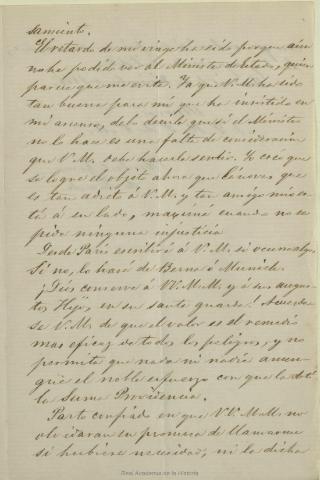 samiento.
El retardo de mi viage ha sido porque aún
no he podido ver al Ministro de Estado, quien
parece que me evita. Ya que V. M. ha sido
tan buena para mí que ha insistido en
mi ascenso, debo decirla que si el Ministro
no lo hace es una falta de consideración
que V. M. debe hacerle sentir. Yo creo que
se logre el objeto ahora que
es tan adicto á V. M. y tan amigo mio es-
tá á su lado, maxime cuando no se
pide ninguna injusticia
Desde París escribiré á V. M. si ocurre algo.
Si no, lo haré de Berna ó Munich.
¡Dios conserve á VV. MM. y á sus augus-
tos Hijos en su santa guarda! Acuerde-
se V. M. de que el valor es el remedio
mas eficaz de todos los peligros, y no
permita que nada ni nadie amen-
güe el noble esfuerzo con que la dotó
la Suma Providencia.
Parto confiado en que VV. MM. no
olvidaran su promesa de llamarme
si hubiere necesidad, ni la dicha
Real Academia de la Historia